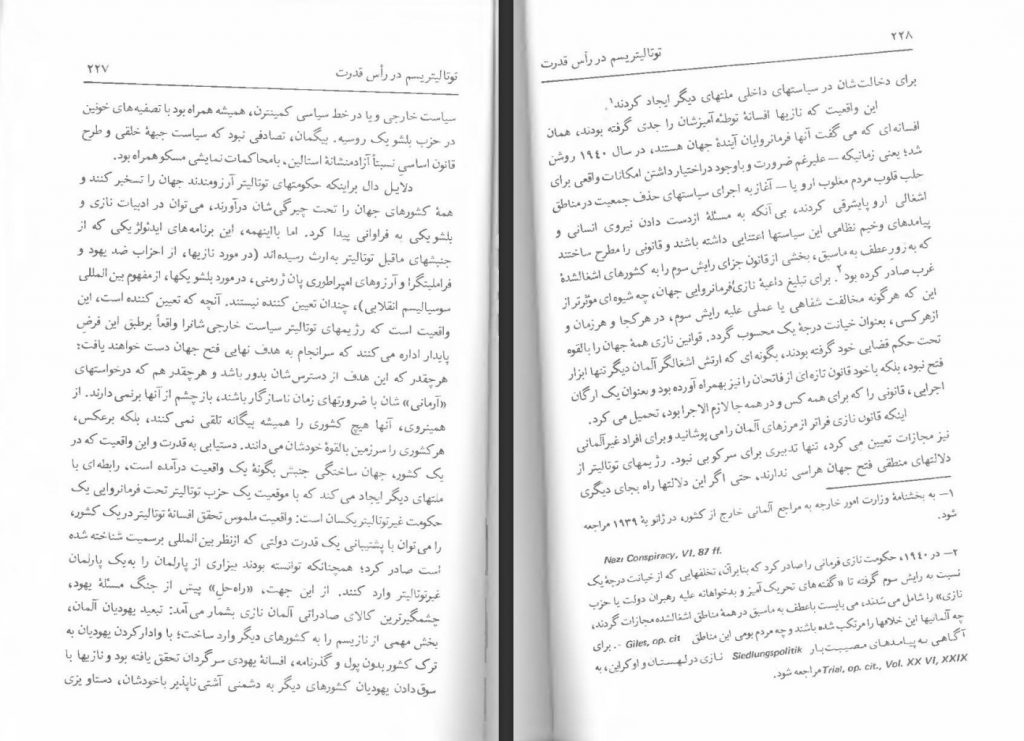 ۲۲۷
توتالیتریسم در رأس قدرت
سیاست خارجی و یا در خط سیاسی کمینترن، همیشه همراه بود با تصفیه‌های خونین
در حزب بلشویک روسیه. بیگمان، تصادفی نبود که سیاست جبهۀ خلقی و طرح
قانون اساسی نسبتاً آزادمنشانۀ استالین، با محاکمات نمایشی مسکو همراه بود.
دلایل دال براینکه حکومتهای توتالیتر آرزومندند جهان را تسخیر کنند و
همۀ کشورهای جهان را تحت چیرگی‌شان درآورند، می‌توان در ادبیات نازی و
بلشویکی به فراوانی پیدا کرد. اما بااینهمه، این برنامه‌های ایدئولژیکی که از
جنبشهای ماقبل توتالیتر به‌ارث رسیده‌اند (در مورد نازیها، از احزاب ضد یهود و
فراملیتگرا و آرزوهای امپراطوری پان ژرمنی، درمورد بلشویکها، ازمفهوم بین‌المللی
سوسیالیسم انقلابی)، چندان تعیین کننده نیستند. آنچه که تعیین کننده است، این
واقعیت است که رژیمهای توتالیتر سیاست خارجی شانرا واقعاً برطبق این فرضِ
پایدار اداره می‌کنند که سرانجام به هدف نهایی فتح جهان دست خواهند یافت؛
هرچقدر که این هدف از دسترس‌شان بدور باشد و هرچقدر هم که درخواستهای
«آرمانی» شان با ضرورتهای زمان ناسازگار باشند، باز چشم از آنها برنمی دارند. از
همینروی، آنها هیچ کشوری را همیشه بیگانه تلقی نمی کنند، بلکه برعکس،
هر کشوری را سرزمین بالقوۀ خودشان می‌دانند. دستیابی به قدرت و این واقعیت که در
یک کشور، جهان ساختگی جنبش بگونۀ یک واقعیت درآمده است، رابطه‌ای با
ملتهای دیگر ایجاد می کند که با موقعیت یک حزب توتالیتر تحت فرمانروایی یک
حکومت غیرتوتالیتر یکسان است: واقعیت ملموس تحقق افسانۀ توتالیتر دریک کشور،
را می‌توان با پشتیبانی یک قدرت دولتی که ازنظر بین المللی برسمیت شناخته شده
است صادر کرد؛ همچنانکه توانسته بودند بیزاری از پارلمان را به‌یک پارلمان
غیرتوتالیتر وارد کنند. از این جهت، «راه‌حلِ» پیش از جنگ مسئلۀ یهود،
چشمگیرترین کالای صادراتی آلمان نازی بشمار می‌آمد: تبعید یهودیان آلمان،
بخش مهمی از نازیسم را به کشورهای دیگر وارد ساخت؛ با وادارکردن یهودیان به
ترک کشور بدون پول و گذرنامه، افسانۀ یهودی سرگردان تحقق یافته بود و نازیها با
سوق‌دادن یهودیان کشورهای دیگر به دشمنی آشتی‌ناپذیر باخودشان، دستاویزی
۲۲۸
توتالیتریسم در رأس قدرت
برای دخالت‌شان در سیاستهای داخلی ملتهای دیگر ایجاد کردند۱.
این واقعیت که نازیها افسانۀ توطئه‌آمیزشان را جدی گرفته بودند، همان
افسانه‌ای که می گفت آنها فرمانروایان آیندۀ جهان هستند، در سال ۱۹۴۰ روشن
شد؛ یعنی زمانیکه — علیرغم ضرورت و باوجود دراختیار داشتن امکانات واقعی برای
جلب قلوب مردم مغلوب اروپا — آغاز به اجرای سیاستهای حذف جمعیت در مناطق
اشغالی اروپایشرقی کردند، بی‌آنکه به مسئلۀ ازدست دادن نیروی انسانی و
پیامدهای وخیم نظامی این سیاستها اعتنایی داشته باشند و قانونی را مطرح ساختند
که به زورِ عطف به ماسبق، بخشی از قانون جزای رایش سوم را به کشورهای اشغالشدۀ
غرب صادر کرده بود۲. برای تبلیغ داعیۀ نازیِ فرمانروایی جهان، چه شیوه‌ای مؤثرتر از
این که هرگونه مخالفت شفاهی یا عملی علیه رایش سوم، در هرکجا و هرزمان و
ازهرکسی، بعنوان خیانت درجۀ یک محسوب گردد. قوانین نازی همۀ جهان را بالقوه
تحت حکم قضایی خود گرفته بودند، بگونه‌ای که ارتش اشغالگر آلمان دیگر تنها ابزار
فتح نبود، بلکه با خود قانون تازه‌ای از فاتحان را نیز بهمراه آورده بود و بعنوان یک ارگان
اجرایی، قانونی را که برای همه کس و در همه جا لازم الاجرا بود، تحمیل می کرد.
اینکه قانون نازی فراتر از مرزهای آلمان را می پوشانید و برای افراد غیرآلمانی
نیز مجازات تعیین می کرد، تنها تدبیری برای سرکوبی نبود. رژیمهای توتالیتر از
دلالتهای منطقی فتح جهان هراسی ندارند، حتی اگر این دلالتها راه بجای دیگری
۱— به بخشنامۀ وزارت امور خارجه به مراجع آلمانی خارج از کشور، در ژانویۀ ۱۹۳۹ مراجعه
شود.
Nazi Conspiracy, VI, 87 ff.
۲— در ۱۹۴۰، حکومت نازی فرمانی را صادر کرد که بنابرآن، تخلفهایی که از خیانت درجۀ یک
نسبت به رایش سوم گرفته تا «گفته‌های تحریک آمیز و بدخواهانه علیه رهبران دولت یا حزب
نازی» را شامل می شدند، می بایست باعطف به ماسبق در همۀ مناطق اشغالشده مجازات گردند،
چه آلمانیها این خلافها را مرتکب شده باشند و چه مردم بومی این مناطق Giles, op. cit. برای
آگاهی به پیامدهای مصیبت‌بار Siedlungspolitik نازی در لهستان و اوکراین، به
Trial, op. cit., Vol. XX VI, XXIX مراجعه شود.